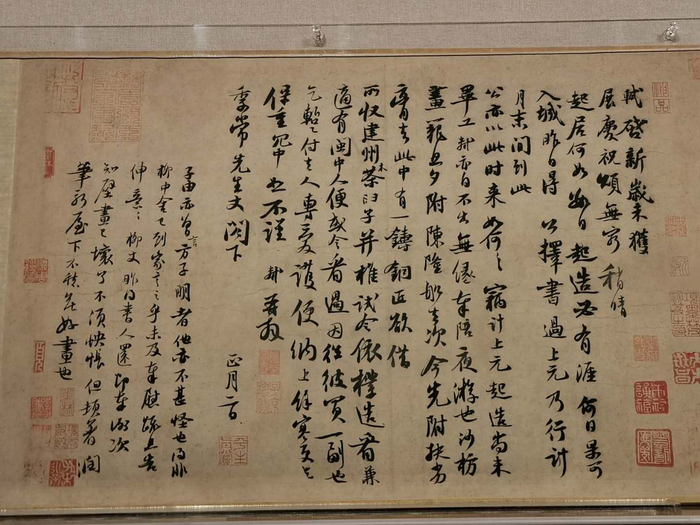 軾啓新歲未獲
展慶祝頌無窮稍晴
起居何如數日起造必有涯何日果可
入城昨日得公擇書過上元乃行計
月末間到此
公亦以此時來如何々竊計上元起造尚未
畢工軾亦自不出無緣奉陪夜游也沙枋
畫籠旦夕附陳隆船去次今先附扶劣
膏去此中有一鑄銅匠欲借
所收建州木茶臼子并椎試令依樣造看兼
適有閩中人便或令看過因往彼買一副也
乞暫付去人專愛護便納上餘寒更乞
保重冗中恕不謹軾再拜
季常先生丈閤下
正月二日
子由亦曾言方子明者他亦不甚怪也得非
柳中舍已到家言之乎未及奉慰疏且告
伸意々柳丈昨得書人還即奉謝次
知壁畫已壞了不須怏悵但頓著潤
筆新屋下不愁無好畫也